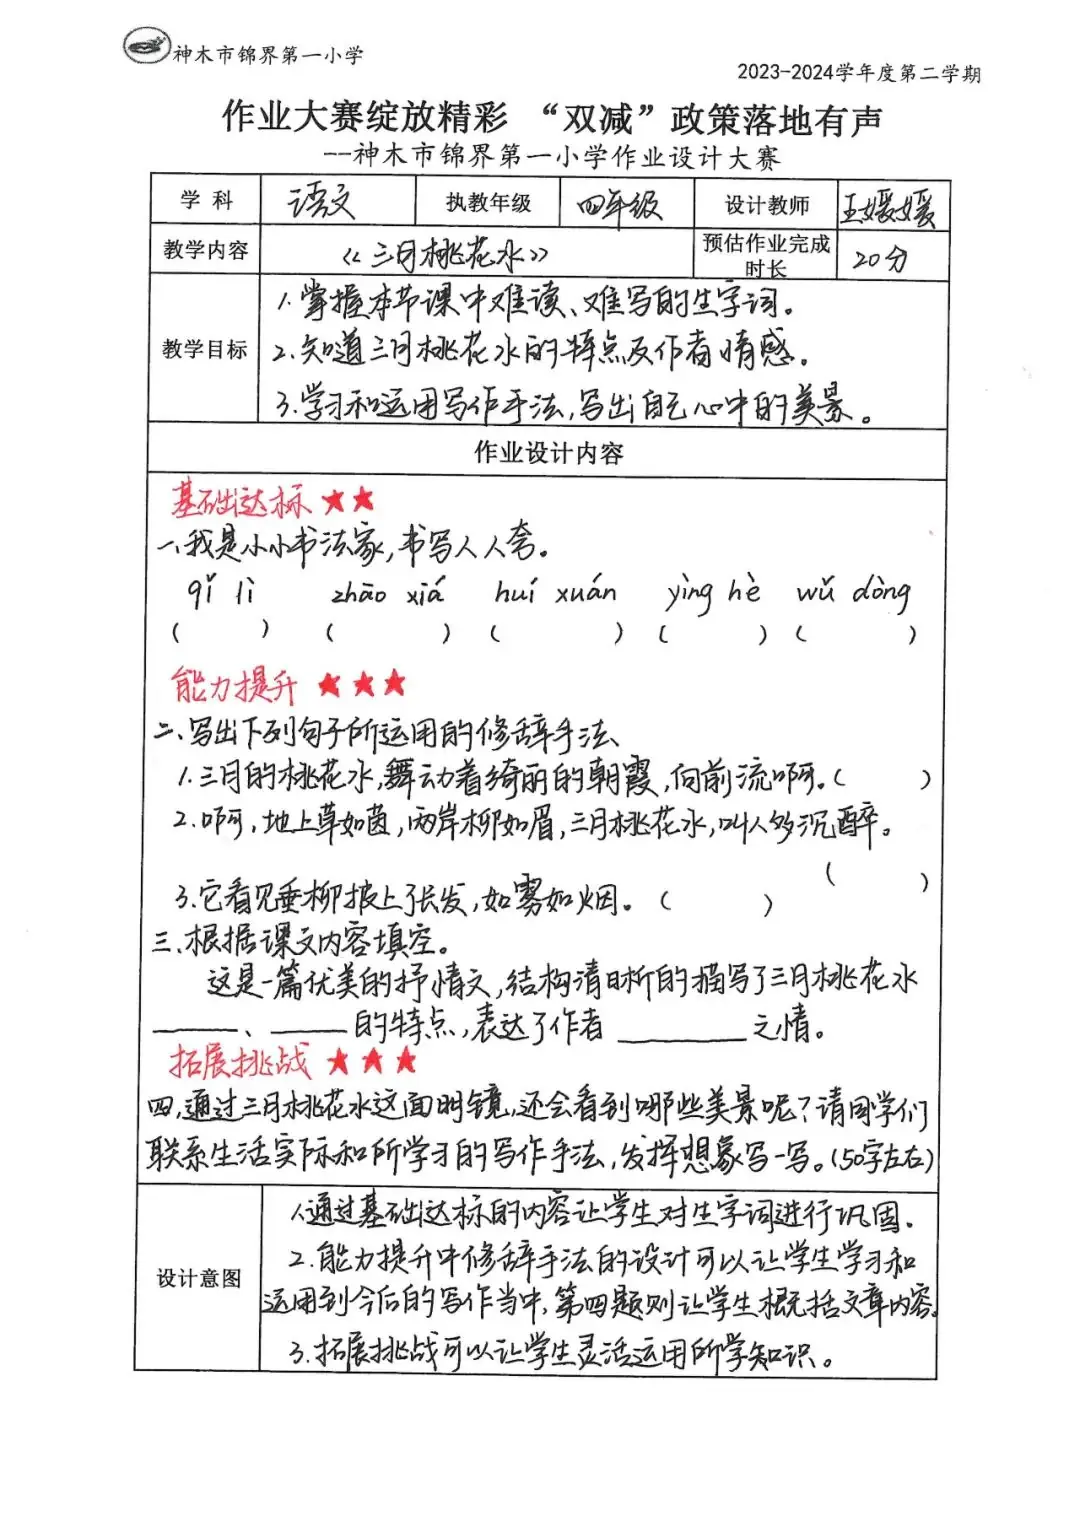 神木市锦界第一小学
2023-2024学年度第二学期
作业大赛绽放精彩 “双减”政策落地有声
--神木市锦界第一小学作业设计大赛
学 科 语文 执教年级 四年级 设计教师 王媛媛
教学内容 《三月桃花水》 预估作业完成时长 20分
教学目标
1.掌握本节课中难读、难写的生字词。
2.知道三月桃花水的特点及作者情感。
3.学习和运用写作手法,写出自己心中的美景。
作业设计内容
基础达标 ★★
一、我是小小书法家,书写人人夸。
qǐ lì zhāo xiá huí xuán yìng hè wǔ dòng
( ) ( ) ( ) ( ) ( )
能力提升 ★★★
二、写出下列句子所运用的修辞手法、
1.三月的桃花水,舞动着绮丽的朝霞,向前流啊。( )
2.啊,地上草如茵,两岸柳如眉,三月桃花水,叫人多沉醉。
( )
3.它看见垂柳披上了长发,如雾如烟。( )
三、根据课文内容填空。
这是一篇优美的抒情文,结构清晰的描写了三月桃花水
______、______的特点,表达了作者__________之情。
拓展挑战 ★★★
四,通过三月桃花水这面明镜,还会看到哪些美景呢?请同学们
联系生活实际和所学习的写作手法,发挥想象写一写。(50字左右)
设计意图
1.通过基础达标的内容让学生对生字词进行巩固.
2.能力提升中修辞手法的设计可以让学生学习和
运用到今后的写作当中,第四题则让学生概括文章内容。
3.拓展挑战可以让学生灵活运用所学知识。